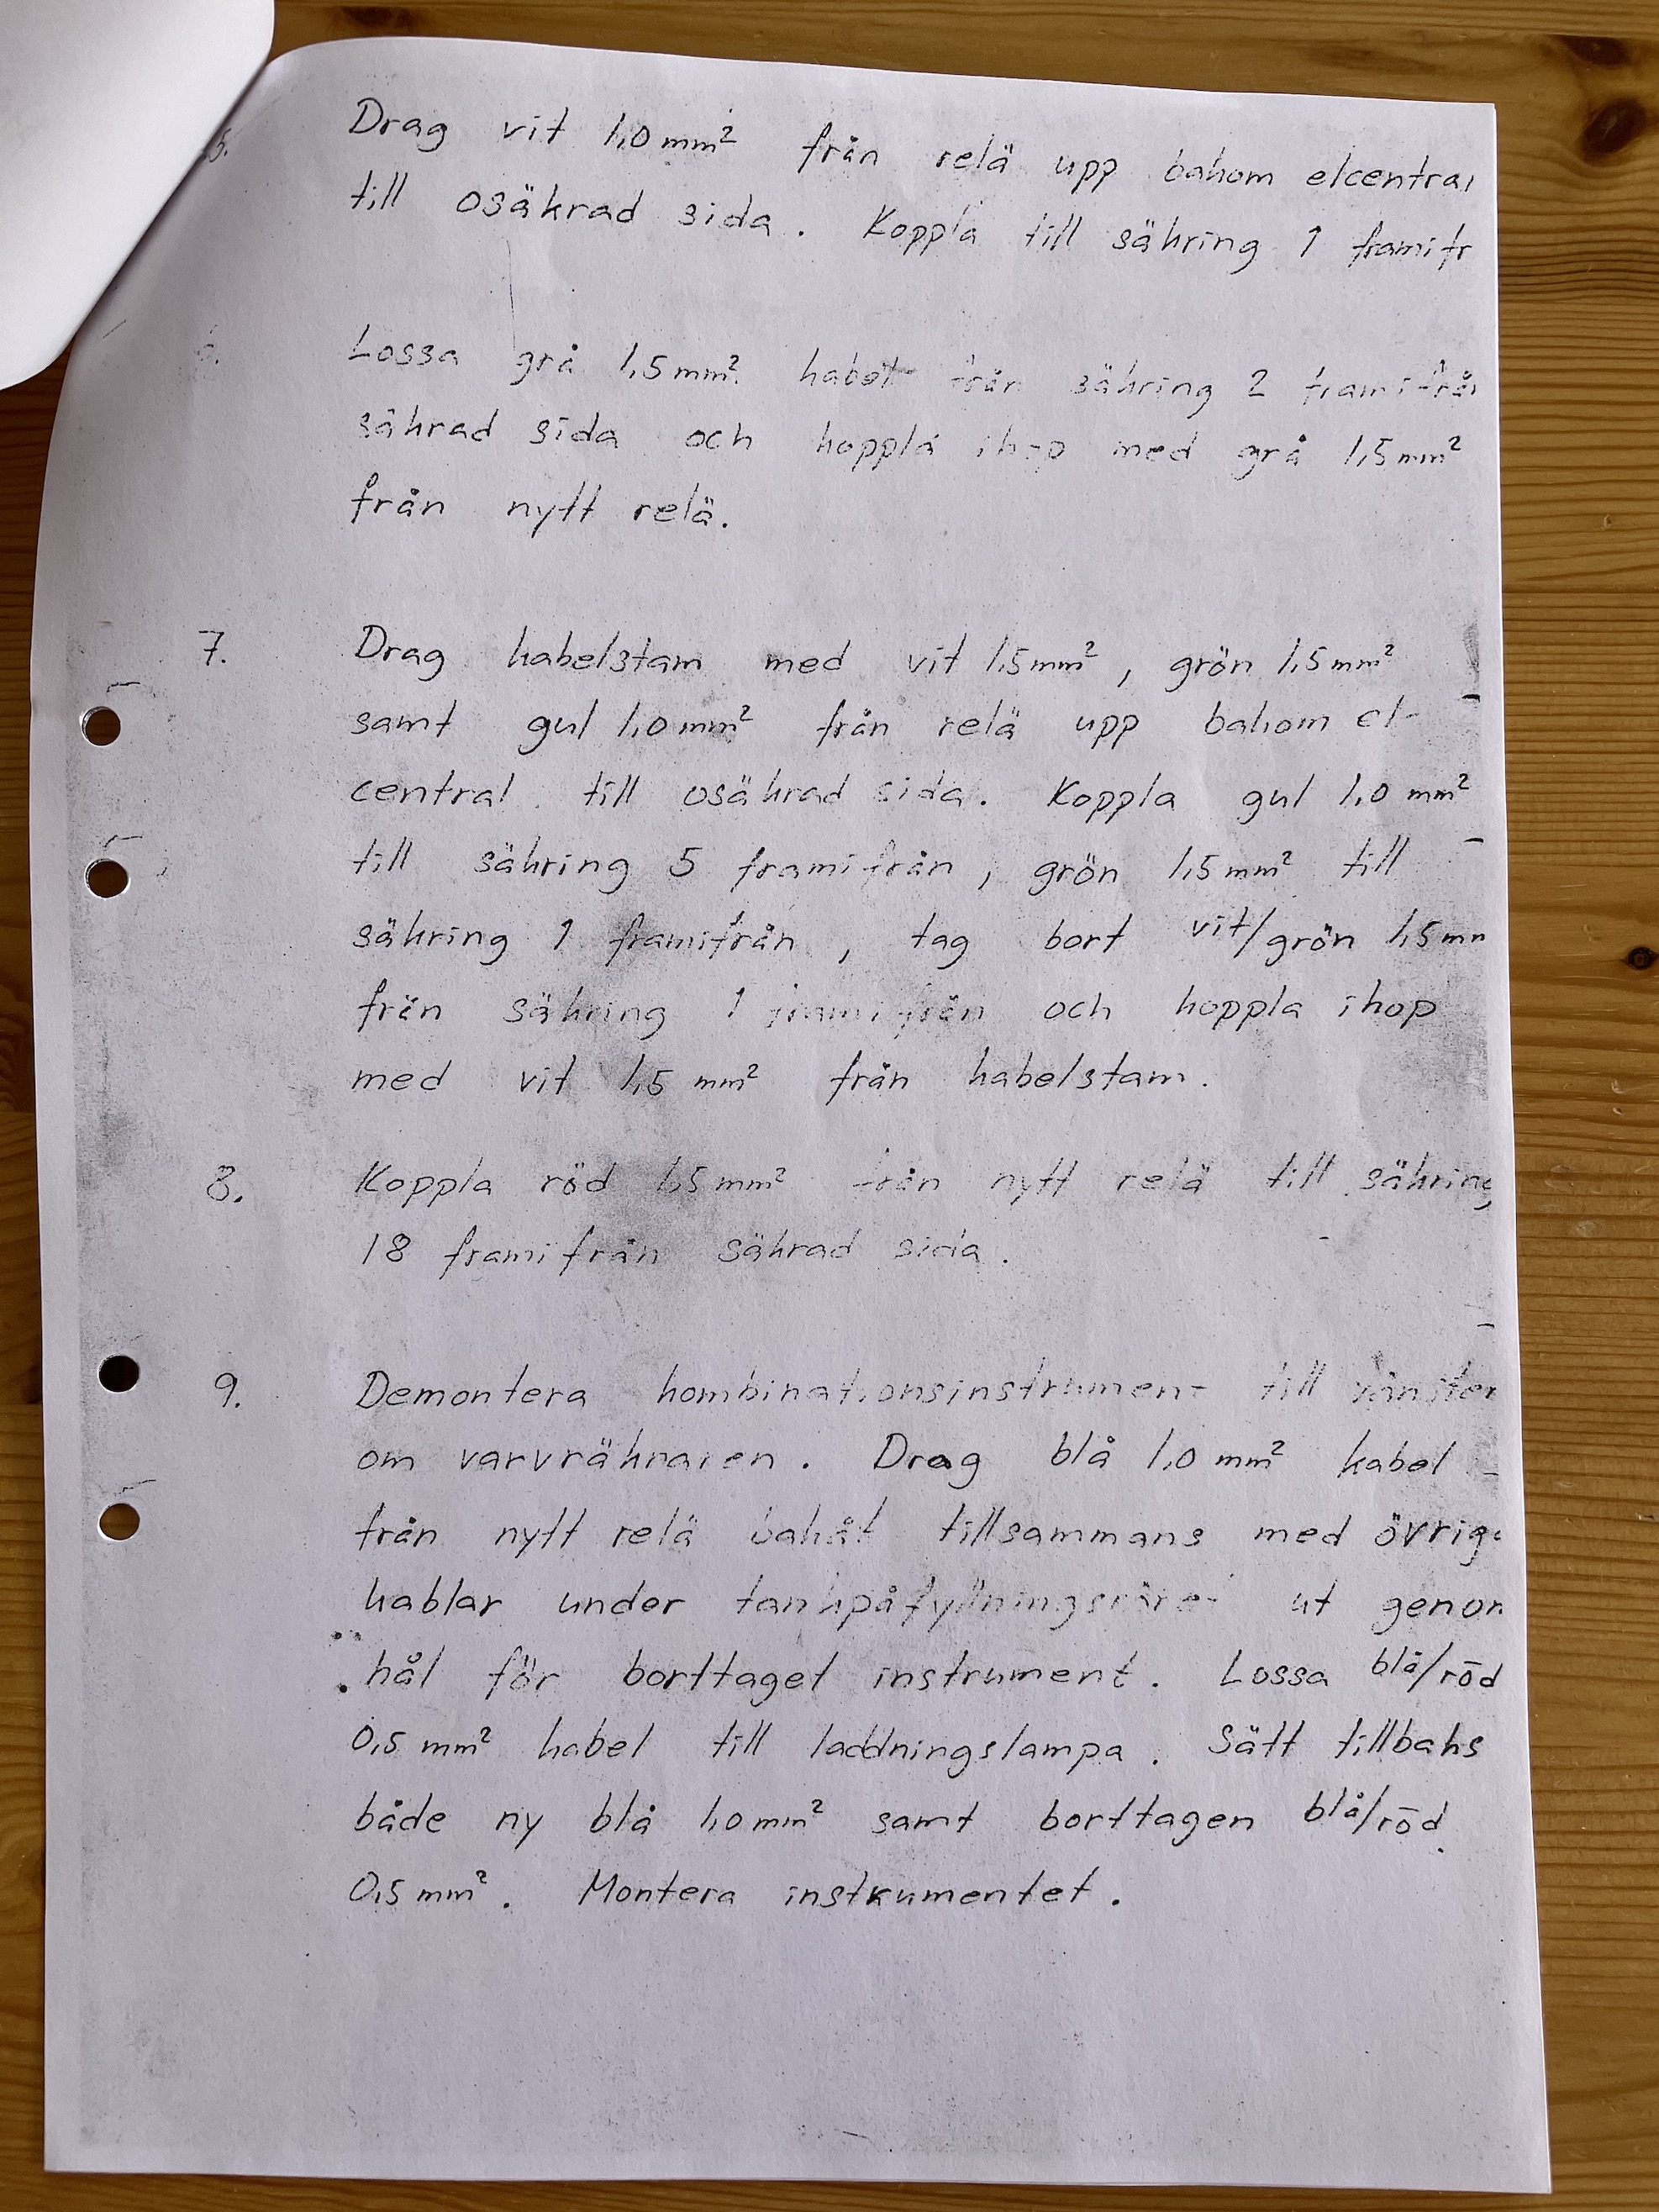 5. Drag vit 1,0 mm² från relä upp bakom elcentral
till osäkrad sida. Koppla till säkring 1 framifr
6. Lossa grå 1,5 mm² kabel från säkring 2 framifrån
säkrad sida och koppla ihop med grå 1,5 mm²
från nytt relä.
7. Drag kabelstam med vit 1,5 mm², grön 1,5 mm²
samt gul 1,0 mm² från relä upp bakom el-
central till osäkrad sida. Koppla gul 1,0 mm²
till säkring 5 framifrån, grön 1,5 mm² till
säkring 1 framifrån, tag bort vit/grön 1,5 mm
från säkring 1 framifrån och koppla ihop
med vit 1,5 mm² från kabelstam.
8. Koppla röd 1,5 mm² från nytt relä till säkring
18 framifrån säkrad sida.
9. Demontera kombinationsinstrument till vänster
om varvräknaren. Drag blå 1,0 mm² kabel
från nytt relä bakåt tillsammans med övriga
kablar under tankpåfyllningsröret ut genom
hål för borttaget instrument. Lossa blå/röd
0,5 mm² kabel till laddningslampa. Sätt tillbaks
både ny blå 1,0 mm² samt borttagen blå/röd
0,5 mm². Montera instrumentet.